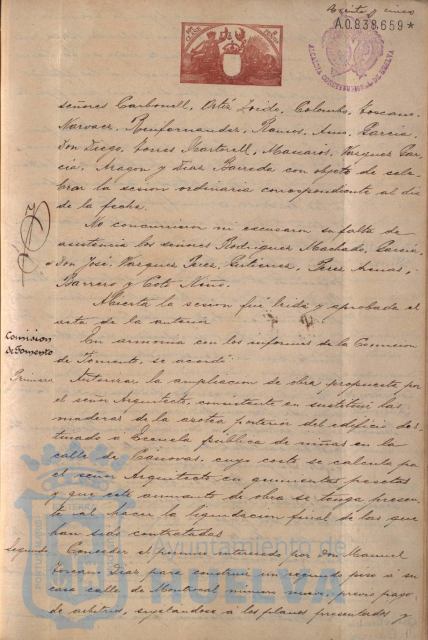 A.0.838,659*
ALCALDIA CONSTITUCIONAL DE HUELVA
señores Carbonell, Ortiz, Loido, Colombo, Toscano,
Narvaez, Benfernandez, Ramos, Garcia
Don Diego, Torres Martorell, Macario, Vazquez Gar-
cia, Aragon y Diaz Barreda con objeto de cele-
brar la sesion ordinaria correspondiente al dia
de la fecha.
No concurrieron ni escusaron su falta de
asistencia los señores Rodriguez Machado, Garcia
Don José, Vazquez Perez, Gutierrez, Perez
Barrero y Coto Niño.
Abierta la sesion fué leida y aprobada el
acta de la anterior
Comision
de Fomento
En armonia con los informes de la Comision
de Fomento, se acordó:
Primero
Autorizar la ampliacion de obra propuesta por
el señor Arquitecto, consistente en sustituir las
maderas de la azotea posterior del edificio des-
tinado a Escuela pública de niñas en la
calle de Cánovas, cuyo coste se calcula por
el señor Arquitecto en quinientas pesetas
y que este aumento de obra se tenga presen-
te al hacer la liquidacion final de las que
han sido contratadas
Segundo
Conceder el permiso interesado por Don Manuel
Toscano Diaz para construir un segundo piso á su
casa calle de Monteval número nueve, previo pago
de arbitrios, sujetandose á los planos presentados y
Ayuntamiento de
HUELVA